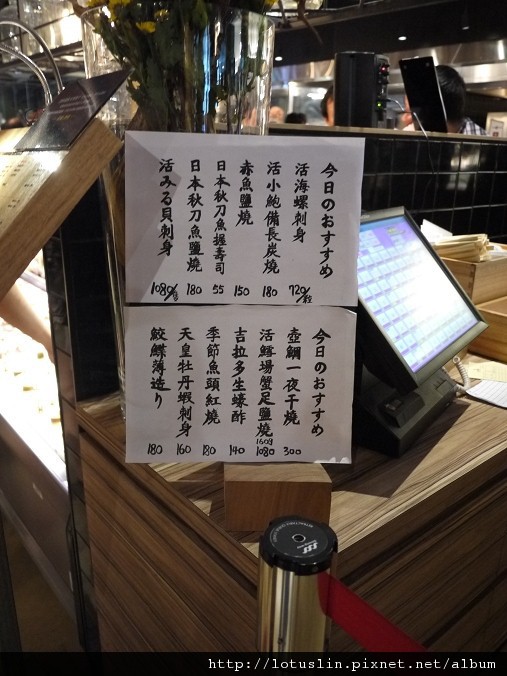 今日のおすすめ
活海螺刺身 720/粒
活小鮑備長炭燒 180
赤魚鹽燒 150
日本秋刀魚握壽司 55
日本秋刀魚鹽燒 180
活みる貝刺身 1080/
今日のおすすめ
壺鯛一夜干燒 300
活鱈場蟹足鹽燒 160g 1080
吉拉多生蠔酢 140
季節魚頭紅燒 180
天皇牡丹蝦刺身 160
鮫鰈薄造り 180
http://lotuslin.pixnet.net/album